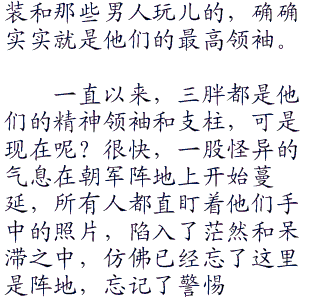 装和那些男人玩儿的，确确
实实就是他们的最高领袖。
一直以来，三胖都是他
们的精神领袖和支柱，可是
现在呢？很快，一股怪异的
气息在朝军阵地上开始蔓
延，所有人都直盯着他们手
中的照片，陷入了茫然和呆
滞之中，仿佛已经忘了这里
是阵地，忘记了警惕